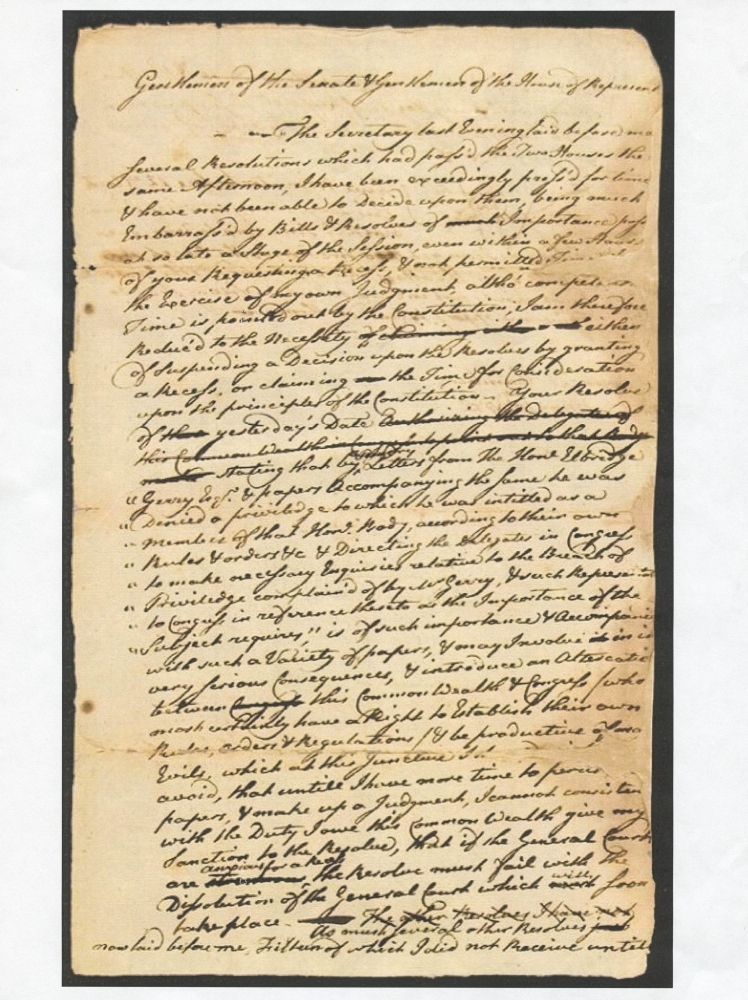 Gentlemen of the Senate & Gentlemen of the House of Represen
The Secretary last Evening laid before me
several Resolutions which had pass'd the Two Houses the
same Afternoon, I have been exceedingly press'd for time
& have not been able to Decide upon them, being much
Embarrass'd by Bills & Resolves of much Importance pass
at so late a Stage of the Session, even within a few Hours
of your Requesting a Recess, & not permitted Time
the Exercise of my own Judgment, altho' competent
Time is pointed out by the Constitution, I am therefore
Reduc'd to the Necessity of claiming either
of suspending a Decision upon the Resolves by granting
a Recess, or claiming the Time for Consideration
upon the principles of the Constitution - Your Resolve
of yesterday's Date Authorizing the Delegates of
this Common Wealth in Congress
stating that by Letters from the Honl. Elbridge
" Gerry Esqr. & papers Accompanying the same he was
" Denied a priviledge to which he was intitled as a
" Member of that Honl. Body, according to their own
" Rules & orders &c & Directing the Delegates in Congress
" to make necessary Enquiries relative to the Breach of
" Priviledge complain'd of by Mr Gerry, & such Represent
" to Congress in reference thereto as the Importance of the
" Subject requires" is of such importance & Accompanied
with such a Variety of papers, & may Involve in it
very serious Consequences, & introduce an Altercatio
between Congress this Common Wealth & Congress (who
most certainly have a Right to Establish their own
Rules, orders & Regulations) & be productive of
Evils, which at this Juncture
avoid, that untill I have more time to peruse
papers, & make up a Judgment, I cannot consisten
with the Duty I owe this Common Wealth give my
Sanction to the Resolve, that if the General Court
are anxious for a Recess, the Resolve must fail with the
Dissolution of the General Court which must will soon
take place. The other Resolves I have not
As must several other Resolves just
now laid before me, Fifteen of which I did not Receive untill